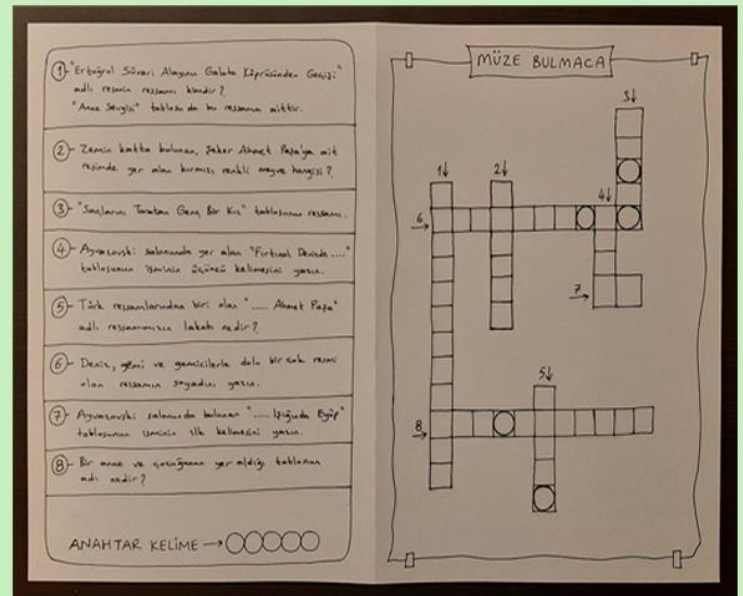 1- "Ertuğrul Süvari Alayının Galata Köprüsünden Geçişi"
adlı resmin ressamı kimdir?
"Anne Sevgisi" tablosu da bu ressama aittir.
2- Zemin katta bulunan, Şeker Ahmet Paşa'ya ait
resimde yer alan kırmızı renkli meyve hangisi?
3- "Saçlarını Taratan Genç Bir Kız" tablosunun ressamı.
4- Ayvazovski salonunda yer alan "Fırtınalı Denizde ...."
tablosunun isminin üçüncü kelimesini yazın.
5- Türk ressamlarından biri olan "..... Ahmet Paşa"
adlı ressamımızın lakabı nedir?
6- Deniz, gemi ve gemicilerle dolu bir çok resmi
olan ressamın soyadını yazın.
7- Ayvazovski salonunda bulunan "..... Işığında Eyüp"
tablosunun isminin ilk kelimesini yazın.
8- Bir anne ve çocuğunun yer aldığı tablonun
adı nedir?
ANAHTAR KELİME →
MÜZE BULMACA
3↓
1↓ 2↓
4↓
6
7
5↓
8